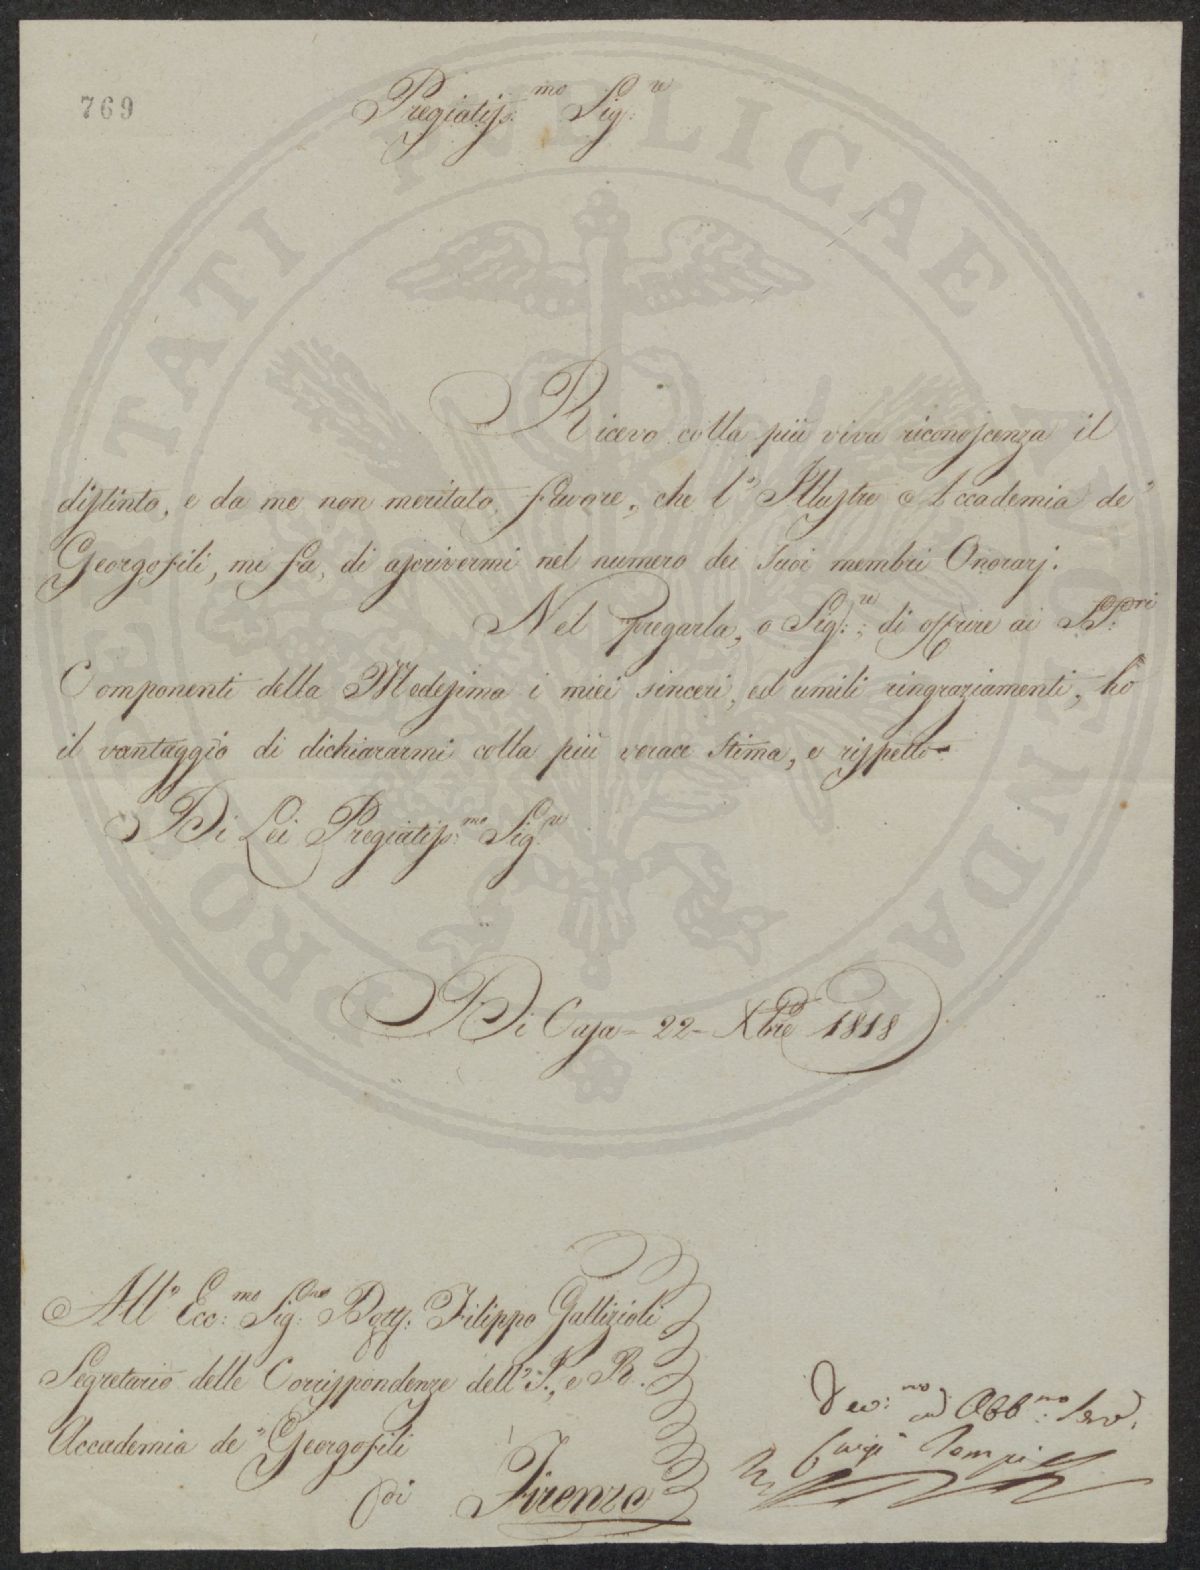 769
Pregiatiss.mo Sig.re
Ricevo colla più viva riconoscenza il
distinto, e da me non meritato favore, che l'Illustre Accademia de'
Georgofili, mi fa, di ascrivermi nel numero dei Suoi membri Onorarj.
Nel pregarla, o Sig.re, di offrire ai
Componenti della Medesima i miei sinceri, ed umili ringraziamenti, hò
il vantaggio di dichiararmi colla più verace stima, e rispetto
Di Lei Pregiatiss.mo Sig.re
Di Casa - 22 - Xbre 1818
All' Ecc.mo Sig.re Dott. Filippo Gallizioli
Segretario delle Corrispondenze dell'I., e R.
Accademia de' Georgofili
di Firenze
Dev.mo ed Obb.mo Serv.
Luigi Tempi
PROSPERITATI PUBLICAE AUGENDAE